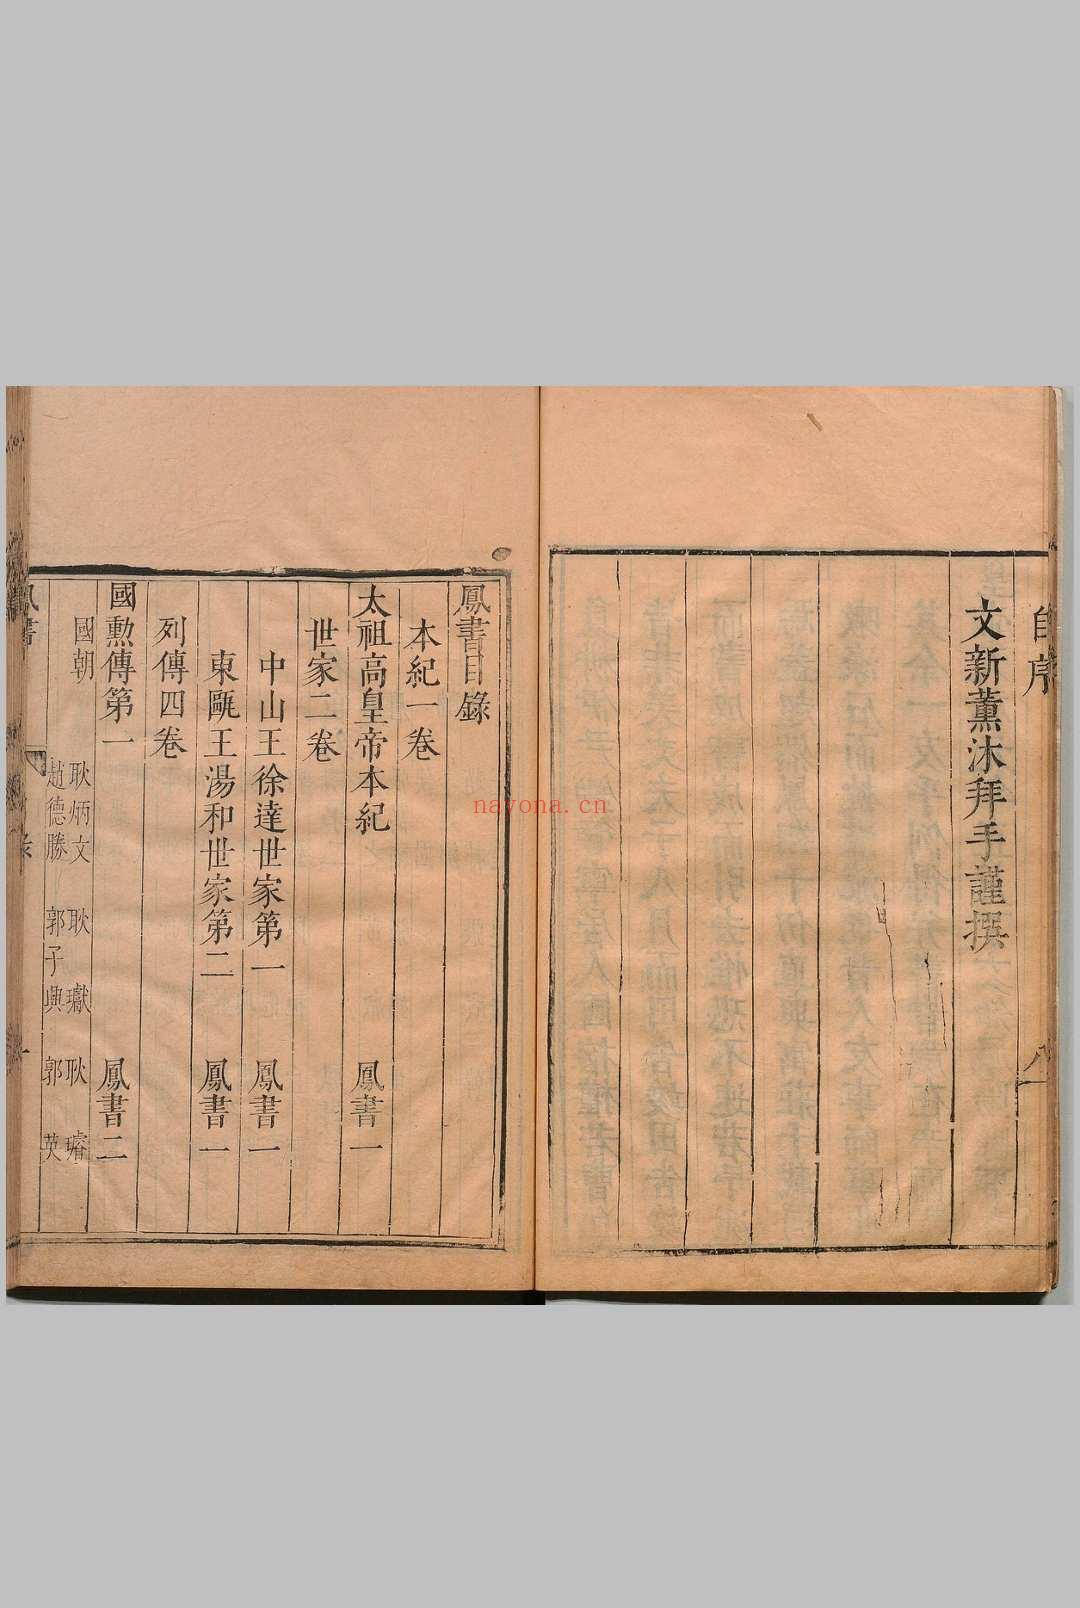 自序
八
文新薰沐拜手謹撰
鳳書目錄
本紀一卷
太祖高皇帝本紀 鳳書一
世家二卷
中山王徐達世家第一 鳳書一
東甌王湯和世家第二 鳳書一
列傳四卷
國勲傳第一 鳳書二
國朝
耿炳文 耿瓛 耿璿
趙德勝 郭子興 郭英
鳳書
nayona.cn